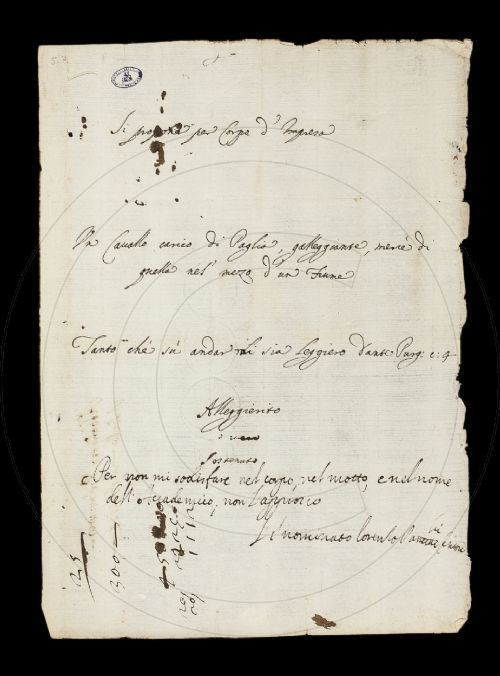 Si propone per Corpo d'Impresa
Un Cavallo carico di Paglia, galleggiante, mercè di
quella nel' mezo d'un Fiume
Tanto che sù andar mi sia leggiero Dante Purg: c: 4
Alleggerito
o vero
Sostenuto
Per non mi sodisfare nel corpo, nel motto, e nel nome
dell'Accademico, non l'approvo
Il nominato Lorenzo
25
300